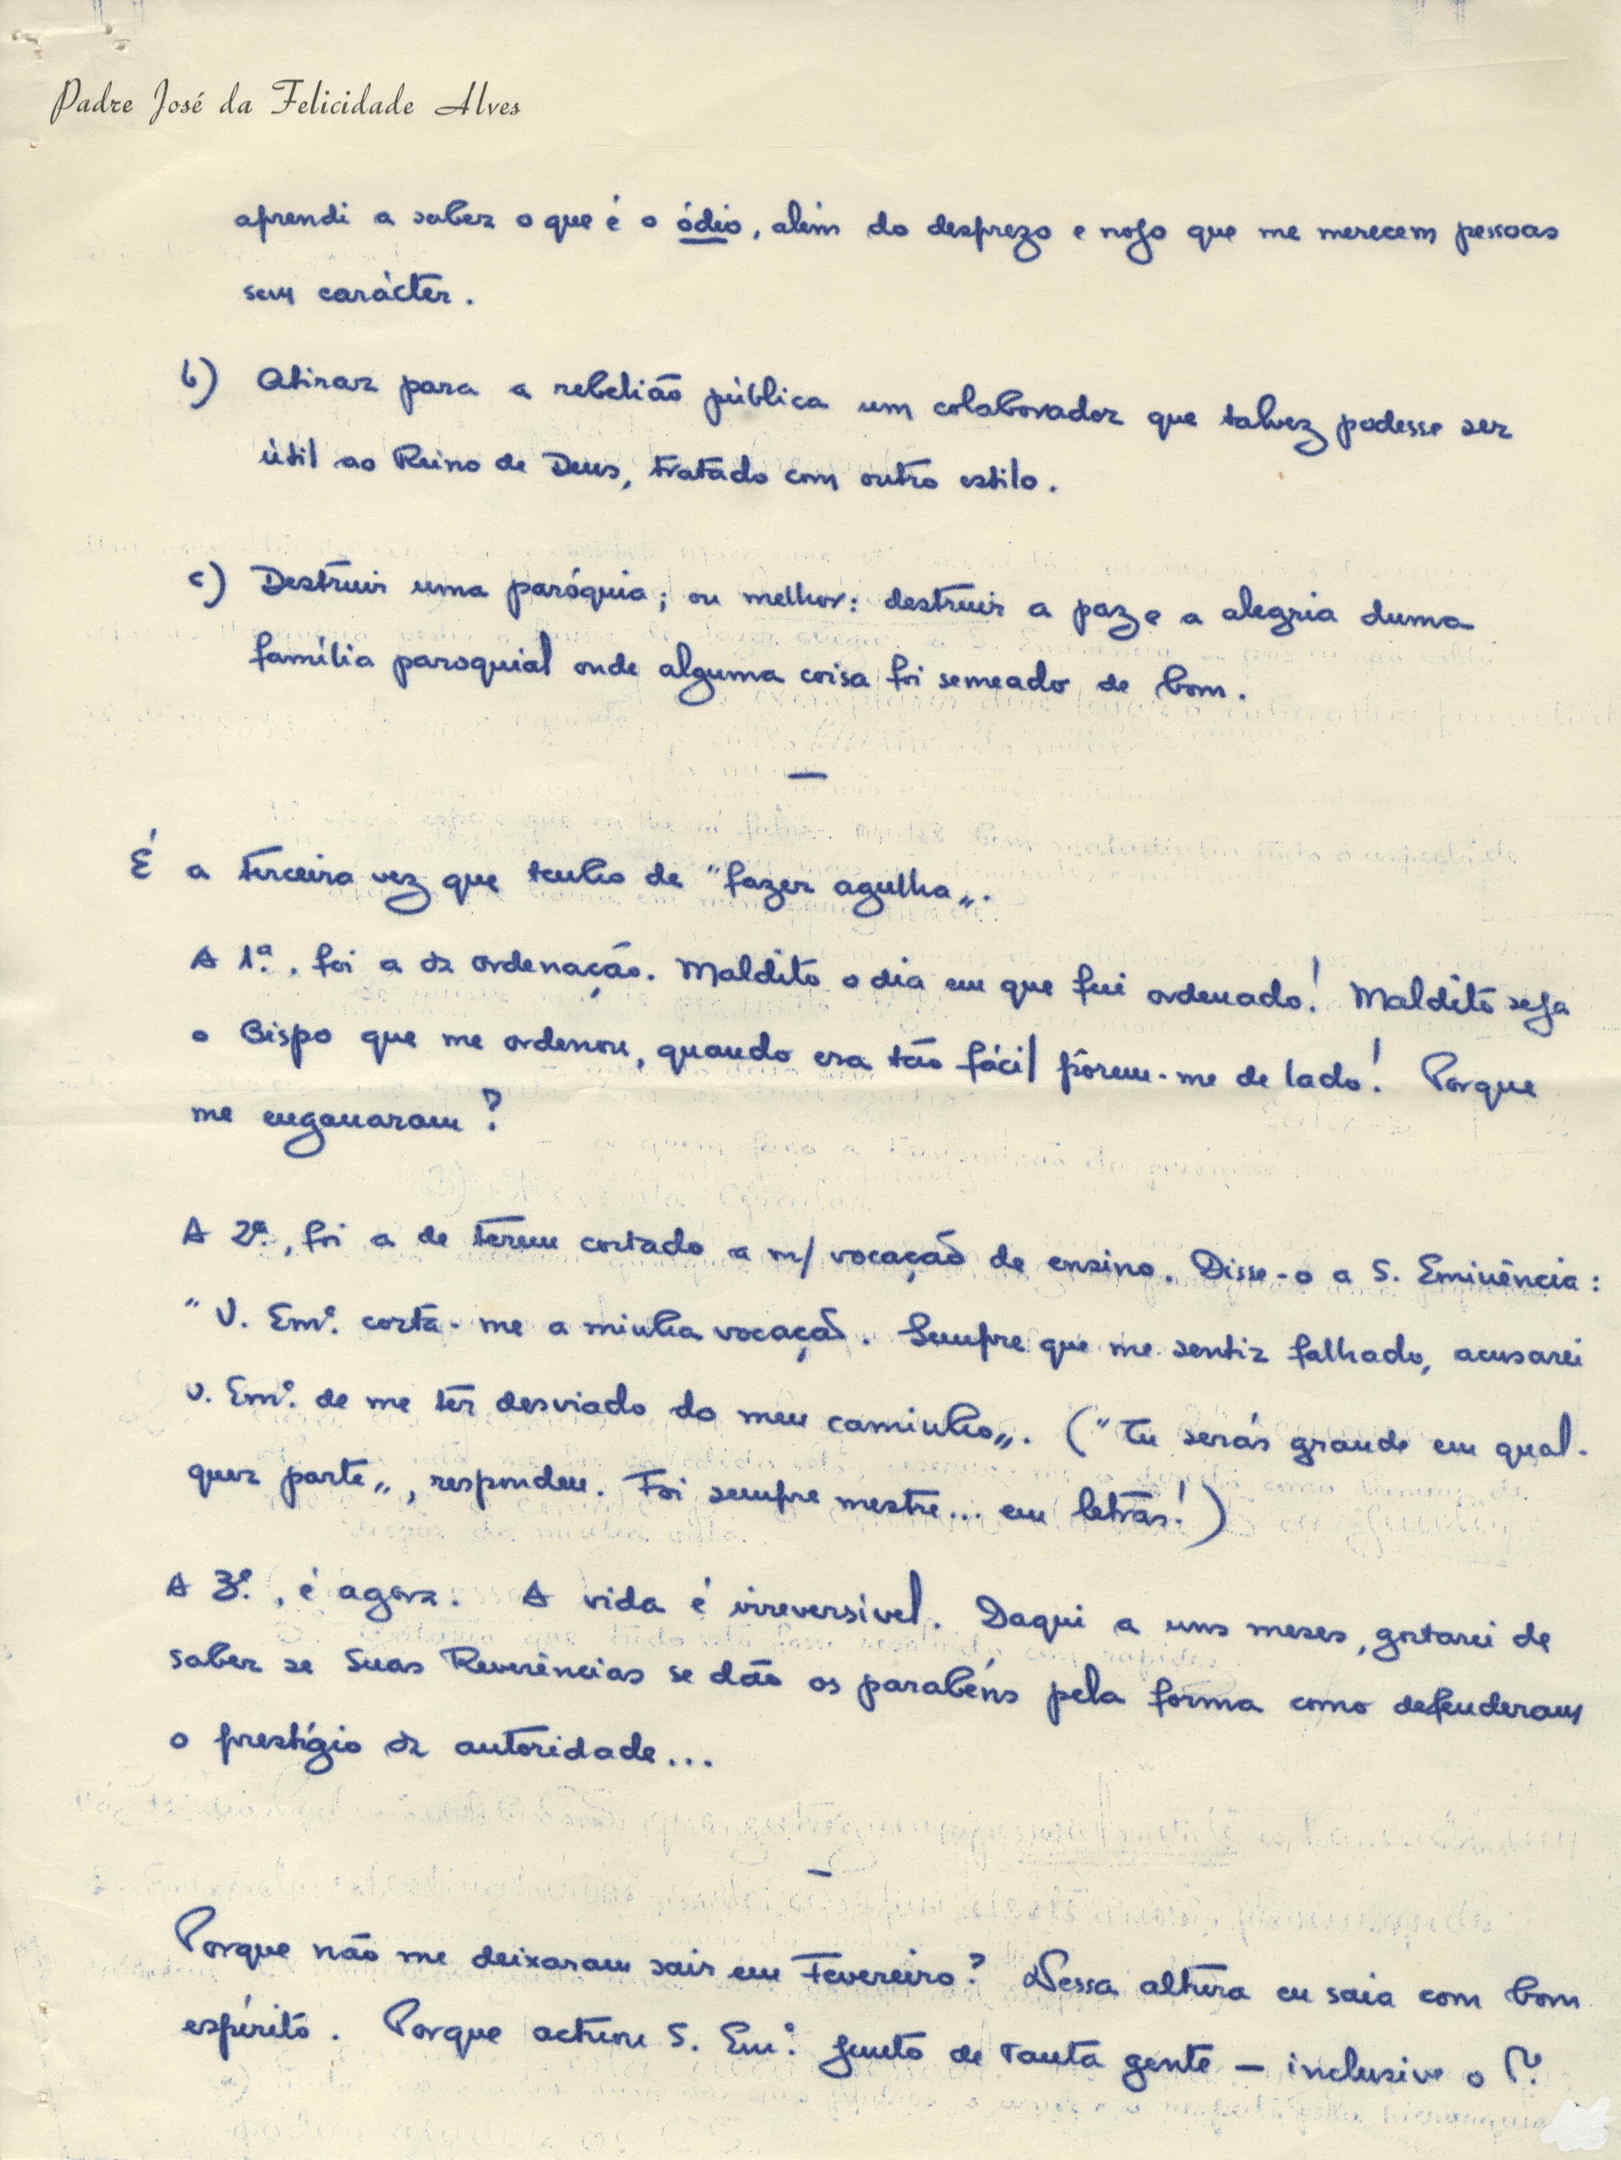 Padre José da Felicidade Alves
aprendi a saber o que é o ódio, além do desprezo e nojo que me merecem pessoas
sem carácter.
b) Atirar para a rebelião pública um colaborador que talvez podesse ser
útil ao Reino de Deus, tratado com outro estilo.
c) Destruir uma paróquia; ou melhor: destruir a paz e a alegria duma
família paroquial onde alguma coisa foi semeado de bom.
—
É a terceira vez que tenho de "fazer agulha„.
A 1ª., foi a da ordenação. Maldito o dia em que fui ordenado! Maldito seja
o Bispo que me ordenou, quando era tão fácil pôrem-me de lado! Porque
me enganaram?
A 2ª., foi a de terem cortado a m/ vocação de ensino. Disse-o a S. Eminência:
"V. Emª. corta-me a minha vocação. Sempre que me sentir falhado, acusarei
V. Emª. de me ter desviado do meu caminho„. ("Tu serás grande em qual-
quer parte„, respondeu. Foi sempre mestre... em letras!)
A 3ª., é agora. A vida é irreversível. Daqui a uns meses, gostarei de
saber se Suas Reverências se dão os parabéns pela forma como defenderam
o prestígio da autoridade...
—
Porque não me deixaram sair em Fevereiro? Nessa altura eu saia com bom
espírito. Porque actuou S. Emª. junto de tanta gente — inclusive o P.